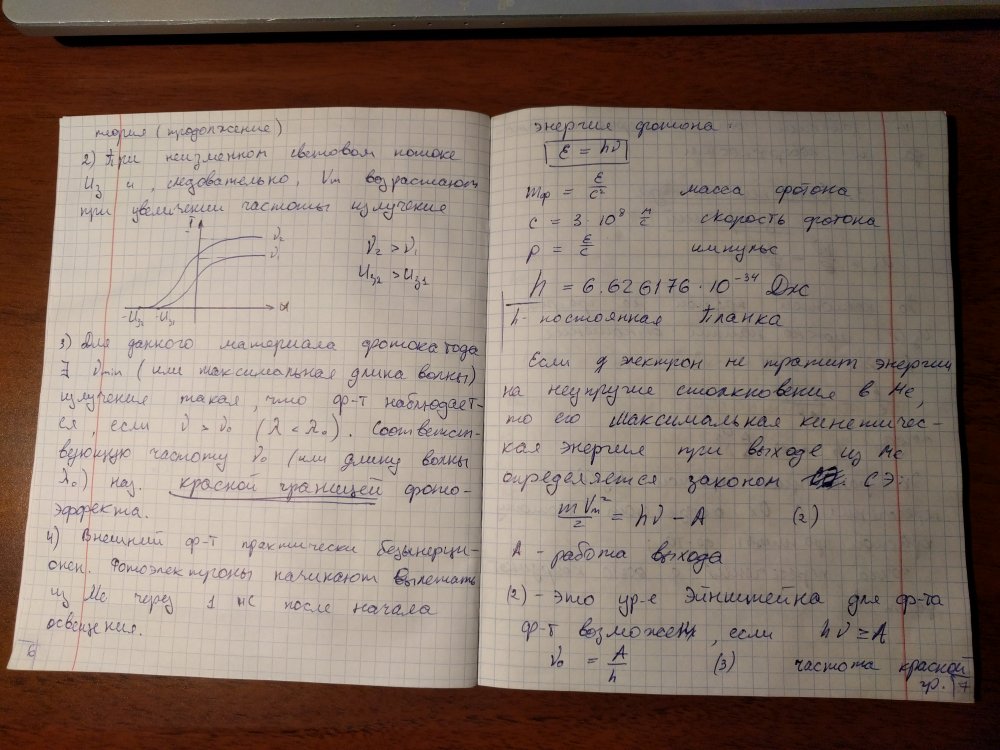 теория (продолжение)
2) При неизменном световом потоке
Uз и, следовательно, Vm возрастают
при увеличении частоты излучения
I
ν₂
ν₁
ν₂ > ν₁
Uз2 > Uз1
-Uз2 -Uз1 U
3) Для данного материала фотокатода
∃ νmin (или максимальная длина волны)
излучение такая, что ф-т наблюдает-
ся, если ν > ν₀ (λ < λ₀). Соответст-
вующую частоту ν₀ (или длину волны
λ₀) наз. красной границей фото-
эффекта.
4) Внешний ф-т практически безынерци-
онен. Фотоэлектроны начинают вылетать
из Me через 1 нс после начала
освещения.
6
энергия фотона:
ε = hν
mф = ε/c² масса фотона
c = 3·10⁸ м/с скорость фотона
p = ε/c импульс
h = 6.626176·10⁻³⁴ Дж
h - постоянная Планка
Если электрон не тратит энергии
на неупругие столкновения в Me,
то его максимальная кинетичес-
кая энергия при выходе из Me
определяется законом СЭ:
mVm²/2 = hν - A (2)
A - работа выхода
(2) - это ур-е Эйнштейна для ф-та
ф-т возможен, если hν ≥ A
ν₀ = A/h (3) частота красной
гр.
7